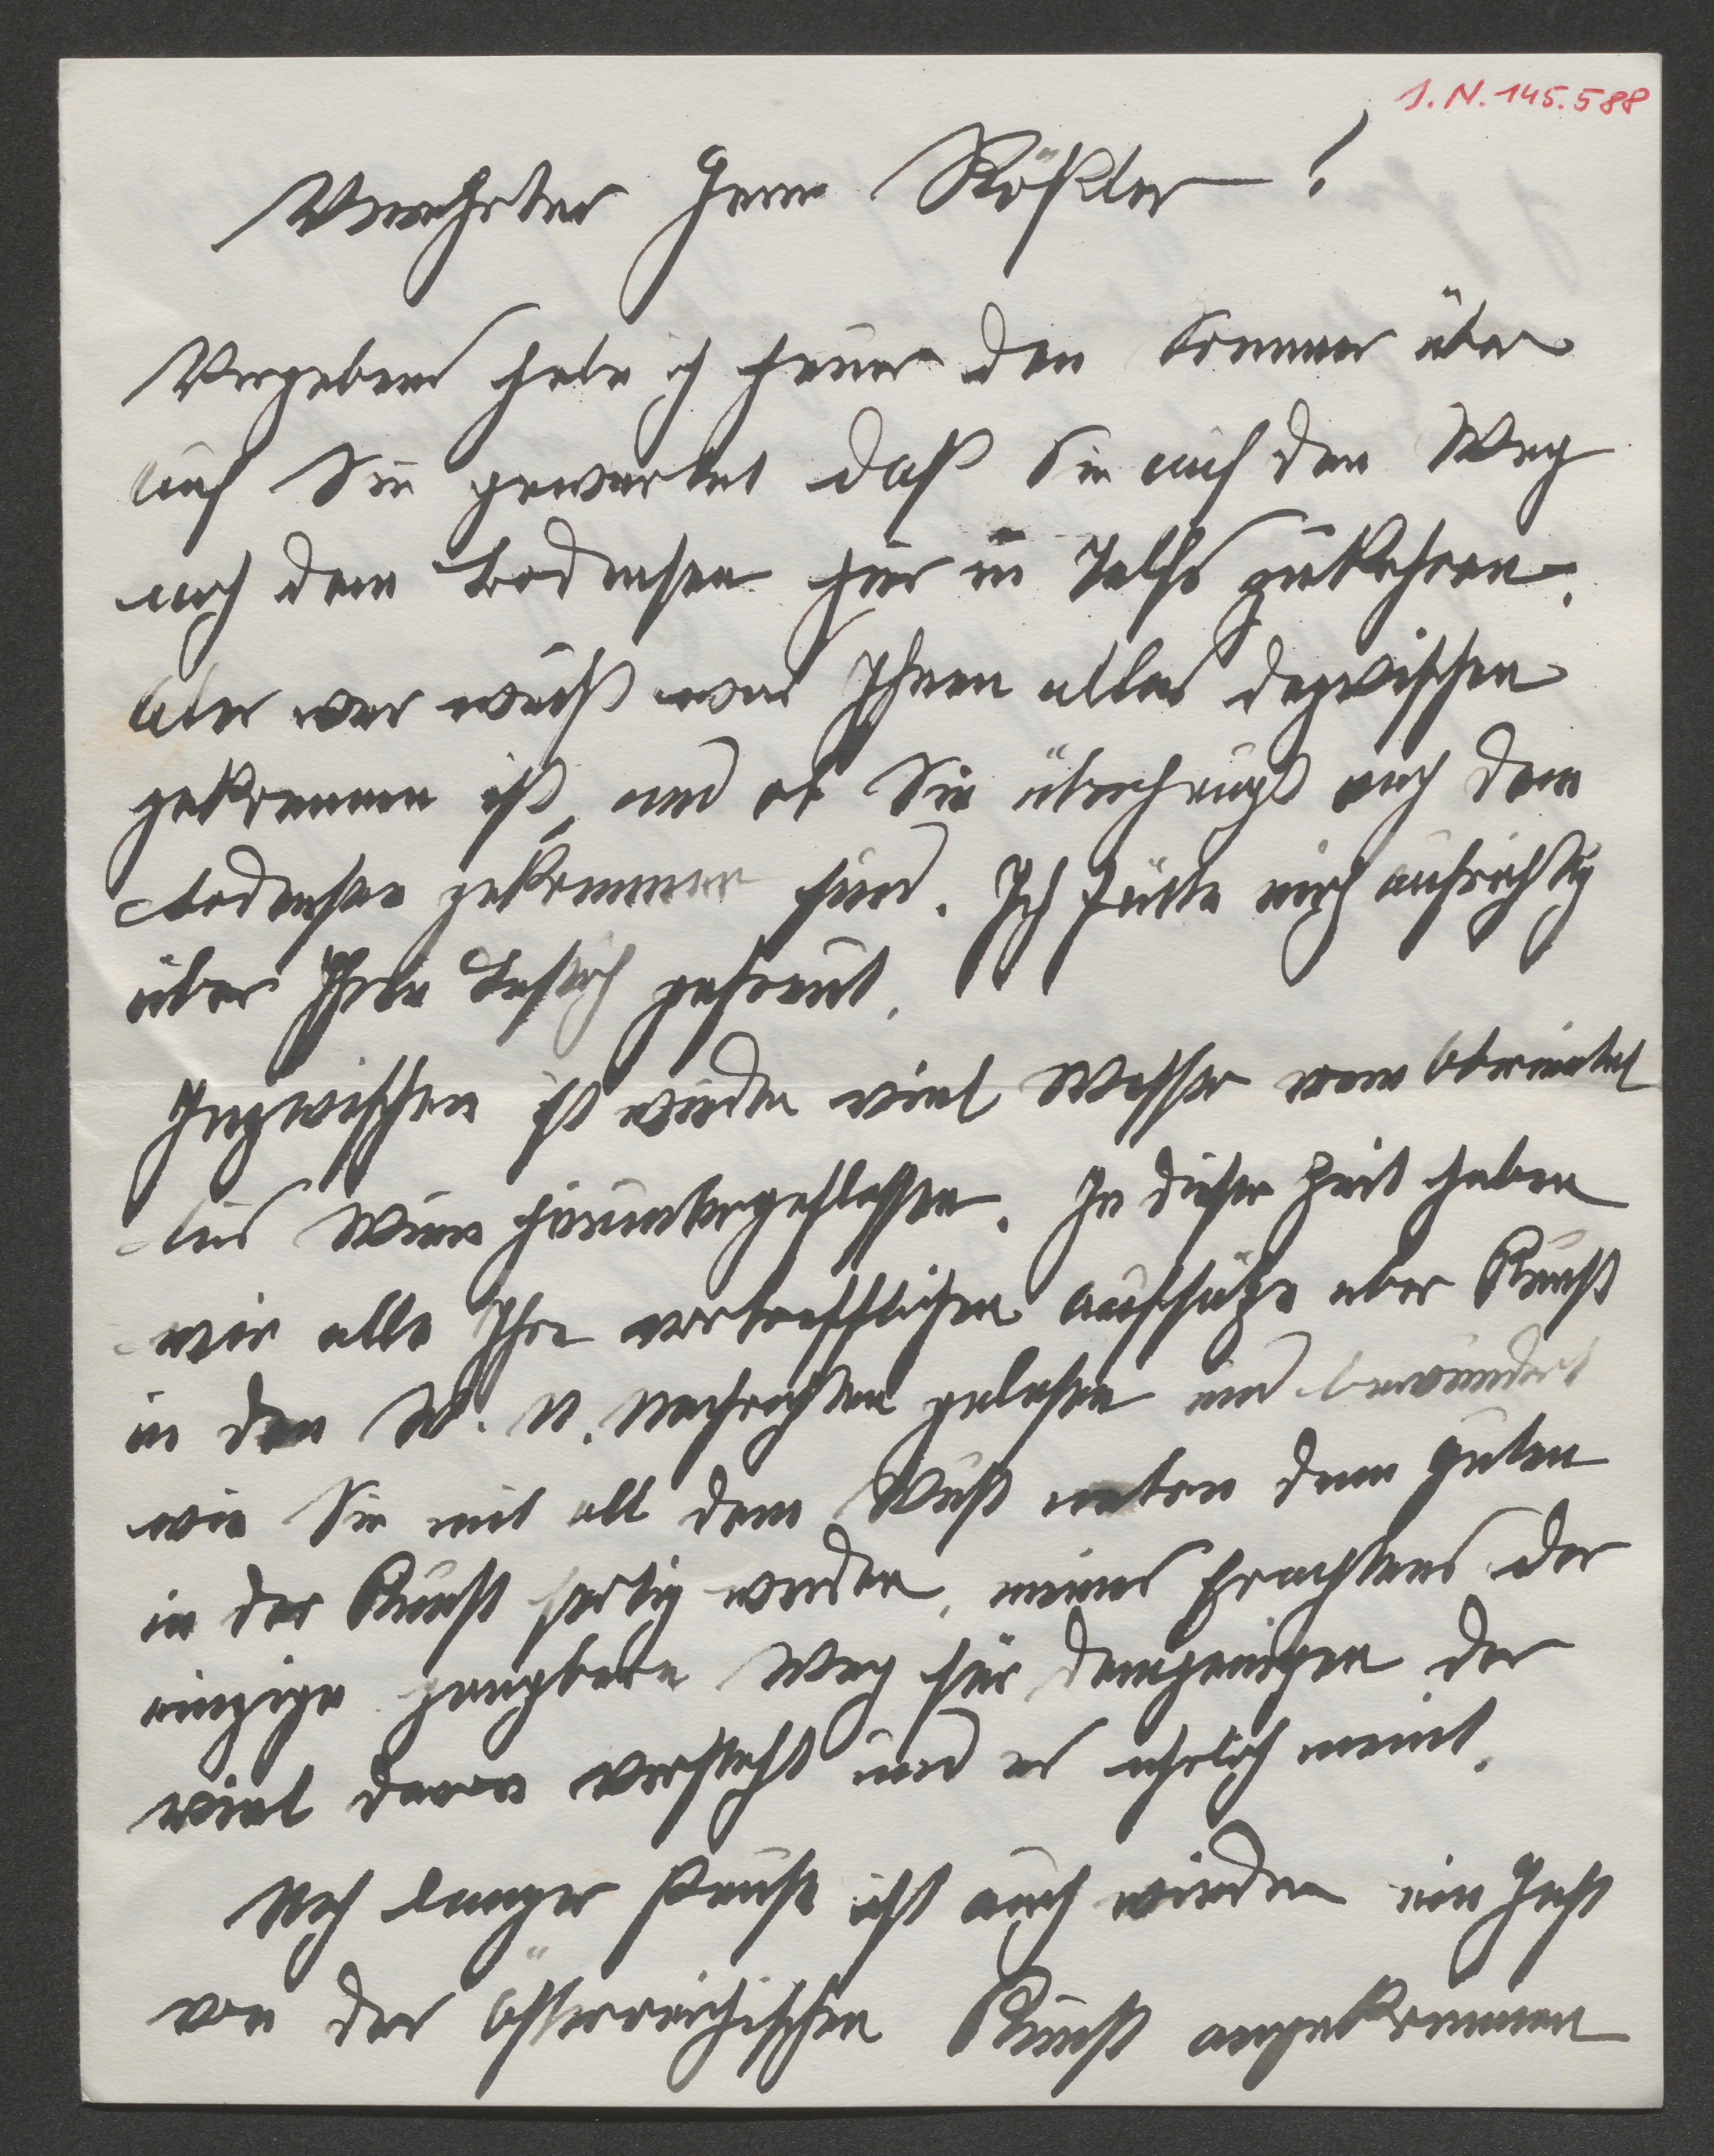 I. N. 145.588
Verehrter Herr Rößler!
Vergebens habe ich heuer den Sommer über
auf Sie gewartet daß Sie auf den Weg
nach dem Bodensee hier in Telfs zukehren.
Aber wer weiß was Ihnen alles dazwischen
gekommen ist, und ob Sie überhaupt nach dem
Bodensee gekommen sind. Ich hätte mich aufrichtig
über Ihren Besuch gefreut.
Inzwischen ist wieder viel Wasser vom Oberinntal
bis Wien hinuntergeflossen. In dieser Zeit haben
wir alle Ihre vortrefflichen Aufsätze über Kunst
in den W. N. Nachrichten gelesen und bewundert
wie Sie mit all dem Wust neben dem guten
in der Kunst fertig werden, meines Erachtens der
einzige gangbare Weg für demjenigen der
viel davon versteht und es ehrlich meint.
Nach langer Pause ist auch wieder ein Heft
von der österreichischen Kunst angekommen